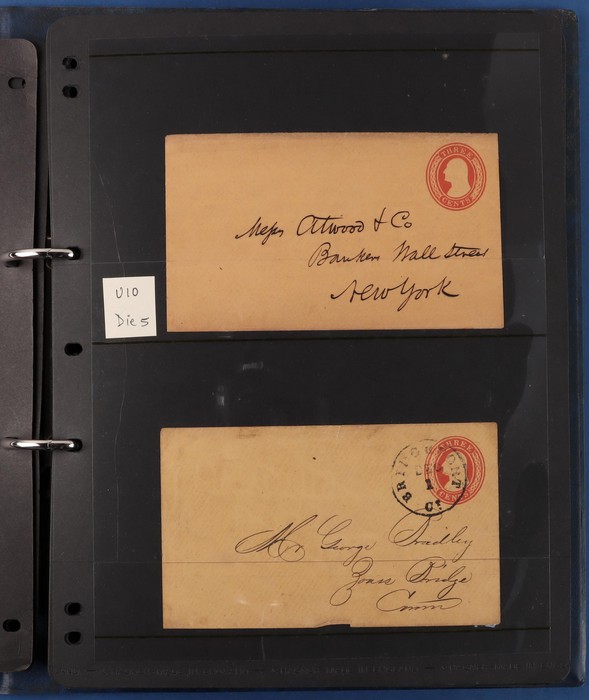 THREE
CENTS
Messrs Atwood & Co
Bankers Wall Street
New York
U10
Die 5
THREE
CENTS
BRIDGEPORT
Ct
Mr George Bradley
Zoars Bridge
Conn